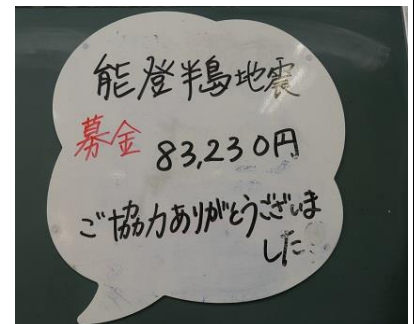 能登半島地震
募金 83,230円
ご協力ありがとうございま
した